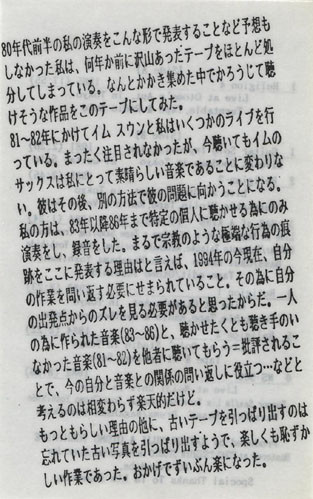 80年代前半の私の演奏をこんな形で発表することなど予想も
しなかった私は、何年か前に沢山あったテープをほとんど処
分してしまっている。なんとかかき集めた中でかろうじて聴
けそうな作品をこのテープにしてみた。
81〜82年にかけてイム スウンと私はいくつかのライブを行
っている。まったく注目されなかったが、今聴いてもイムの
サックスは私にとって素晴らしい音楽であることに変わりな
い。彼はその後、別の方法で彼の問題に向かうことになる。
私の方は、83年以降86年まで特定の個人に聴かせる為にのみ
演奏をし、録音をした。まるで宗教のような極端な行為の痕
跡をここに発表する理由はと言えば、1994年の今現在、自分
の作業を問い返す必要にせまられていること。その為に自分
の出発点からのズレを見る必要があると思ったからだ。一人
の為に作られた音楽(83〜86)と、聴かせたくとも聴き手のい
なかった音楽(81〜82)を他者に聴いてもらう=批評されるこ
とで、今の自分と音楽との関係の問い返しに役立つ…などと
考えるのは相変わらず楽天的だけど。
もっともらしい理由の他に、古いテープを引っぱり出すのは
忘れていた古い写真を引っぱり出すようで、楽しくも恥ずか
しい作業であった。おかげでずいぶん楽になった。